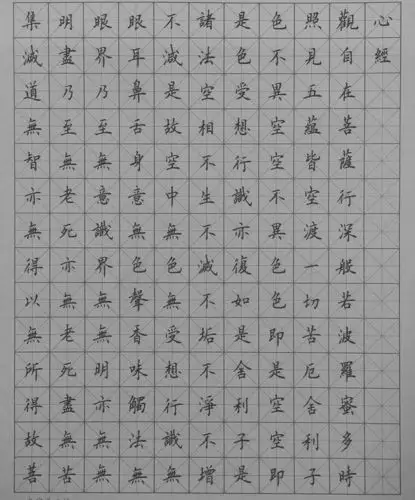 心經
觀自在菩薩行深般若波羅蜜多時
照見五蘊皆空渡一切苦厄舍利子
色不異空空不異色色即是空空即
是色受想行識亦復如是舍利子是
諸法空相不生不滅不垢不淨不增
不減是故空中無色無受想行識無
眼耳鼻舌身意無色聲香味觸法無
眼界乃至無意識界無無明亦無無
明盡乃至無老死亦無老死盡無苦
集滅道無智亦無得以無所得故菩